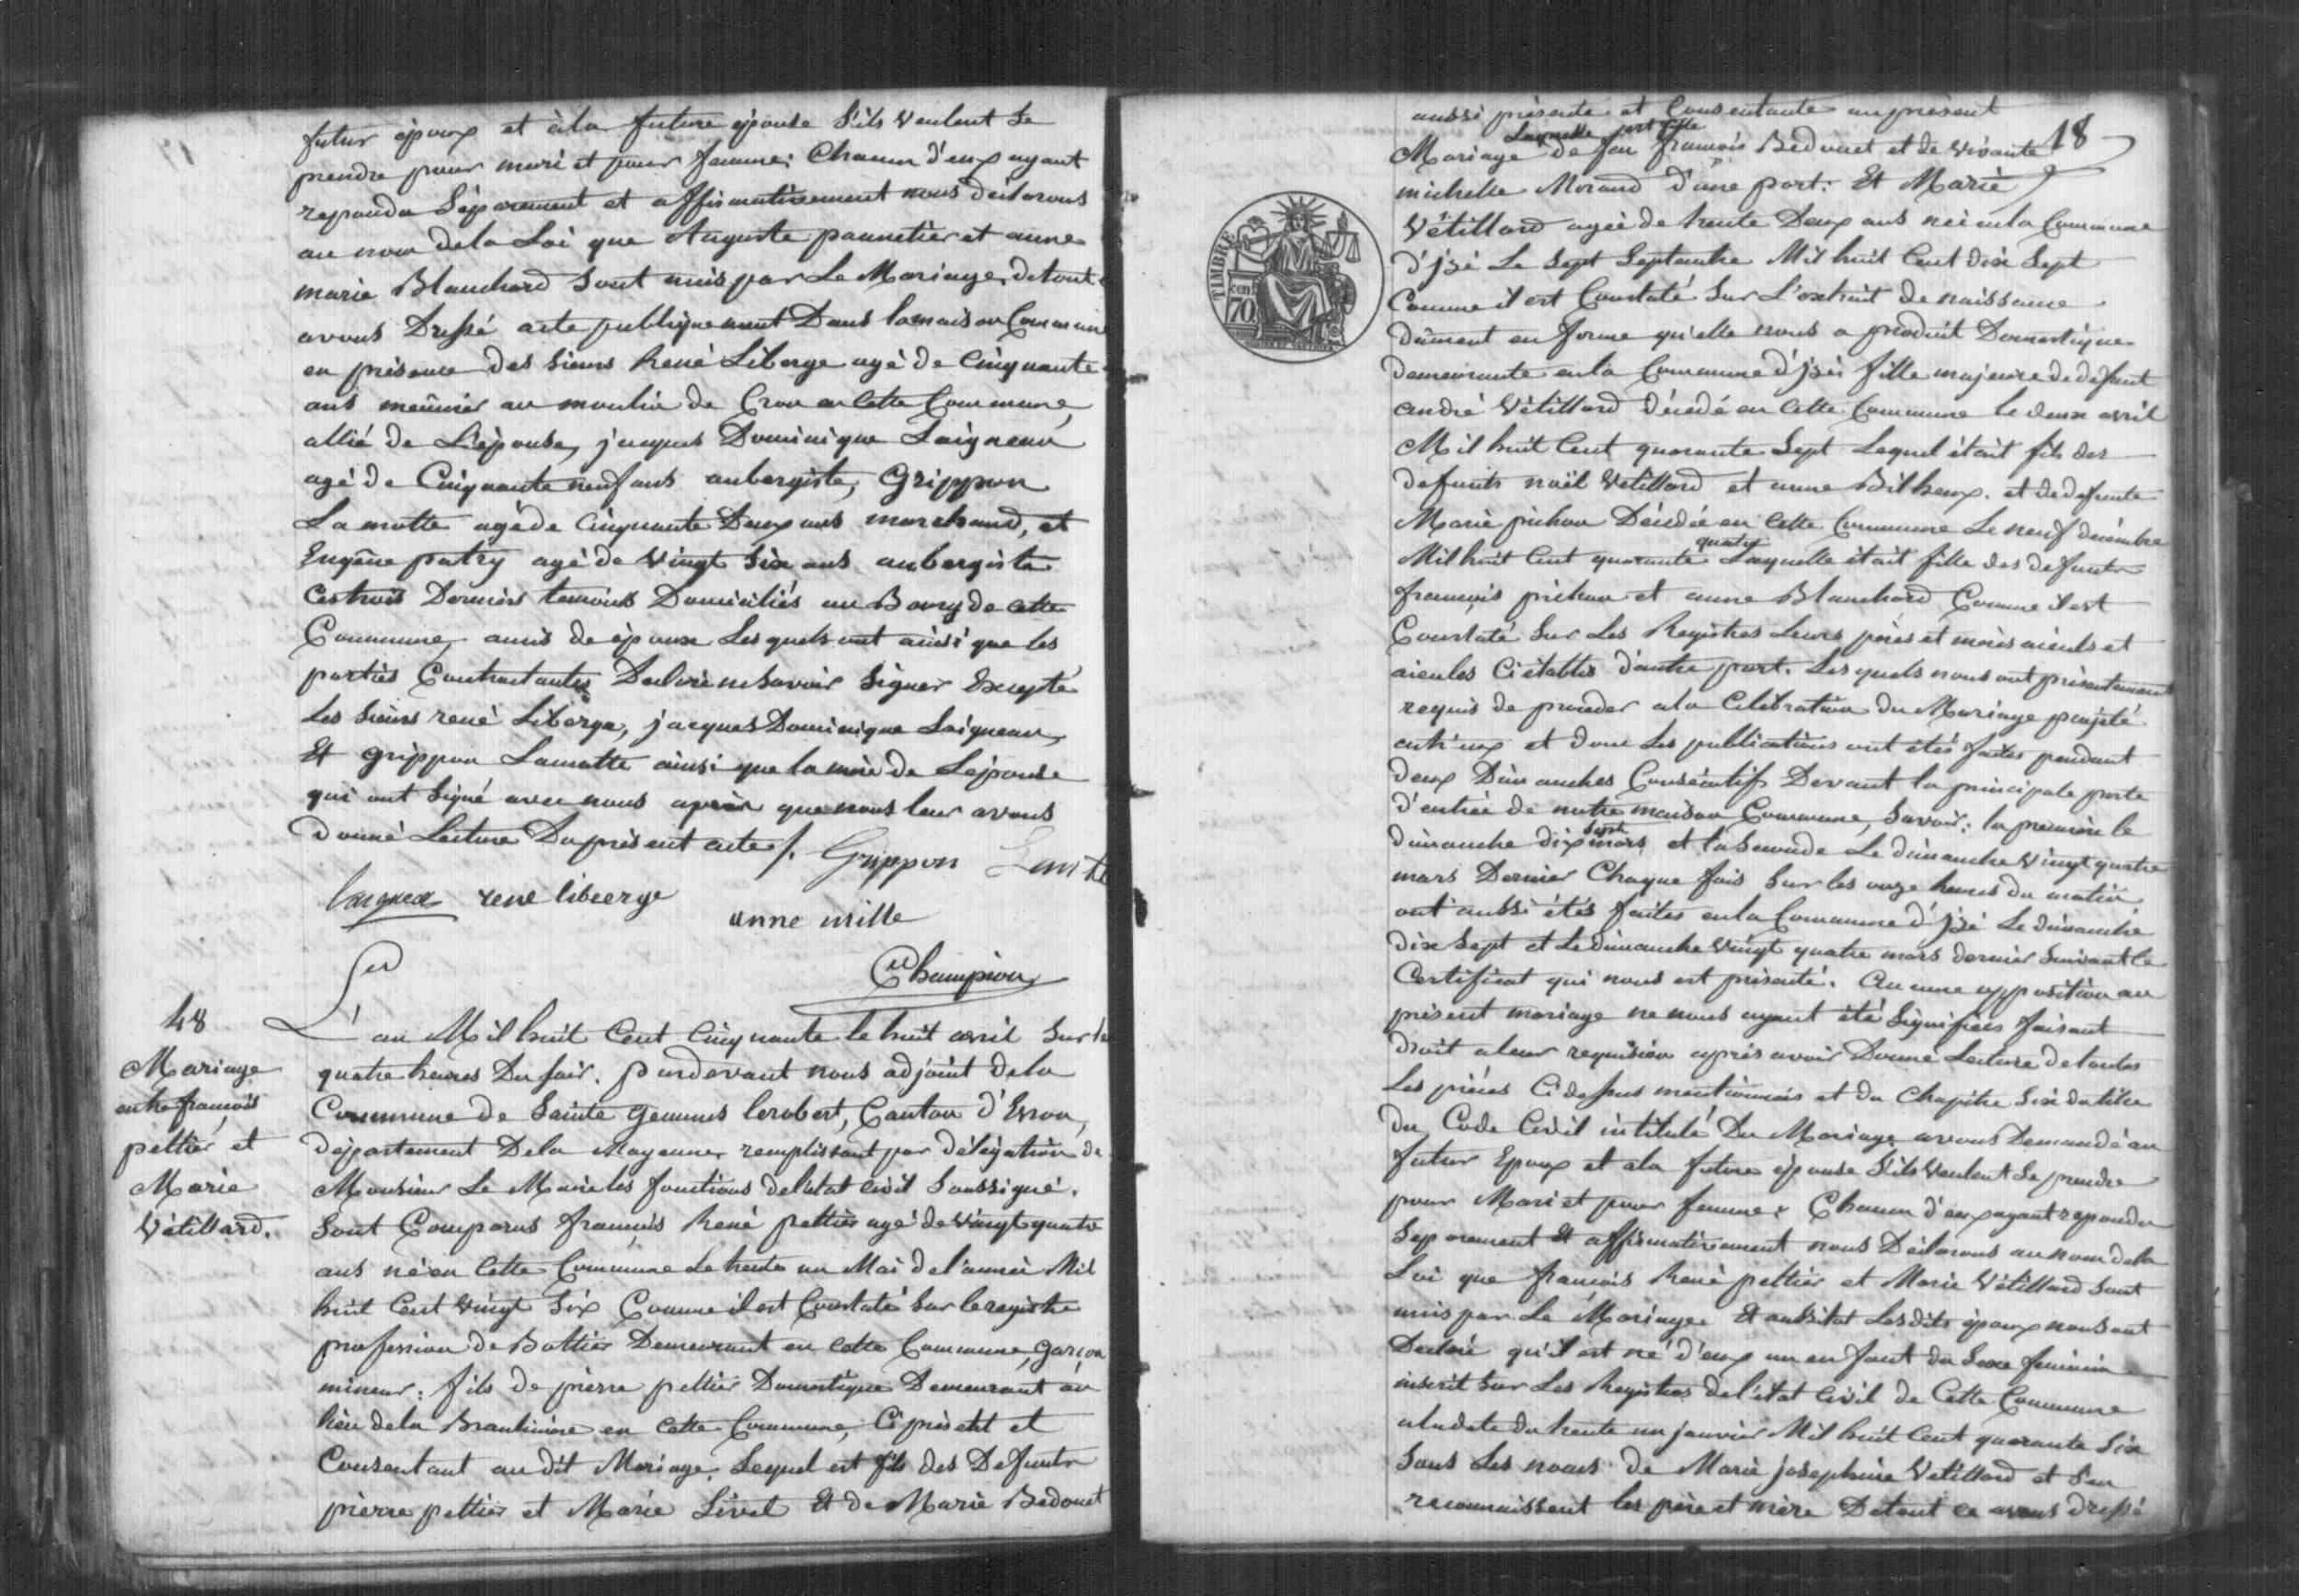 futur époux et àla future épouse S'ils veulent se
prendre pour mari et pour femme; Chacun d'eux ayant
repondu Séparement et affirmativement nous déclarons
au nom dela Loi que Auguste pannetier et anne
marie Blanchard sont unis par Le Mariage, detout
avons Dressé acte publiquement Dans lamaison Commune
en présence des Sieurs René Liberge agé de Cinquante
ans meûnier au moulin de Crou en Cette Commune,
allié de L'épouse, jacques Dominique Laigneau
agé de Cinquante neuf ans aubergiste, Grippon
Lamotte agé de Cinquante Deux ans marchand, et
Eugêne patry agé de vingt Six ans aubergiste
Cestrois Derniers temoins Domiciliés au Bourg de cette
Commune, amis de époux Lesquels ont ainsi que les
parties Contractantes Declaré ne Savoir Signer Excepté
Les Sieurs rené Liberge, jacques Dominique Laigneau,
Et Grippon Lamotte ainsi que la mère de Lépouse
qui ont Signé avec nous après que nous leur avons
Donné Lecture Du présent acte /. Grippon
Laigneau rene libeerge
anne mille
Champion
48
Mariage
entre françois
peltier et
Marie
Vétillard.
L'an Mil huit Cent Cinquante le huit avril Sur les
quatre heures Du Soir. pardevant nous adjoint dela
Commune de Sainte gemmes lerobert, Canton d'Evron,
département Dela Mayenne, remplissant par délégation de
Monsieur Le Maire les fonctions del'état civil Soussigné.
Sont Comparus françois René peltier agé de vingt quatre
ans né en Cette Commune Le trente un Mai del'année Mil
huit Cent vingt Six Comme il est Constaté Sur leregistre
profession de Bottier Demeurant en Cette Commune, garçon
mineur: fils de pierre peltier Domestique Demeurant au
lieu dela Brantinière en Cette Commune, Ci présent et
Consentant au dit Mariage, Lequel est fils des Defunts
pierre peltier et Marie Livet Et de Marie Bedouet
aussi présente et Consentante au présent
18
Laquelle est fille
Mariage de feu françois Bedouet et de vivante
michelle Morand d'une part: Et Marie
Vétillard agée de trente Deux ans née enla Commune
d'jzé Le Sept Septembre Mil huit Cent dix Sept
Comme il est Constaté Sur L'extrait de naissance
dûment en forme qu'elle nous a produit Domestique
demeurante enla Commune d'jzé; fille majeure de défunt
andré Vétillard décédé en Cette Commune le deux avril
Mil huit Cent quarante Sept Lequel était fils des
defunts noël Vétillard et anne Bilheux. et dedefunte
Marie pichon Décédée en Cette Commune Le neuf décembre
quatre
Mil huit Cent quarante Laquelle était fille des defunts
françois pichon et anne Blanchard Comme il est
Constaté Sur Les Registres Leurs pères et mères aieuls et
aieules Ci établis d'autre part. Lesquels nous ont présentement
requis de procéder ala Célébration du Mariage projeté
entr'eux et dont Les publications ont étés faites pendant
deux Dimanches Consécutifs Devant la principale porte
d'entrée de notre maison Commune, Savoir: la première le
Sept
dimanche dix mars et la Seconde Le dimanche vingt quatre
mars Dernier Chaque fois Sur les onze heures du matin
ont aussi étés faites enla Commune d'jzé Le dimanche
dix Sept et Le dimanche vingt quatre mars dernier Suivant le
Certificat qui nous est présenté. Aucune opposition au
présent mariage ne nous ayant été Signifiée faisant
droit aleur requisition après avoir Donné Lecture detoutes
Les pièces Cidessus mentionnées et du Chapitre Six du titre
du Code Civil intitulé Du Mariage avons Demandé au
futur Epoux et ala future épouse S'ils veulent Se prendre
pour Mari et pour femme: Chacun d'eux ayant repondu
Séparement Et affirmativement nous Déclarons au nom dela
Loi que françois René peltier et Marie Vétillard Sont
unis par Le Mariage. Et aussitot Lesdits époux nous ont
Declaré qu'il est né d'eux un enfant du Sexe feminin
inscrit Sur Les Registres del'état Civil de Cette Commune
aladate du trente un janvier Mil huit Cent quarante Six
Sous Les noms de Marie josephine Vétillard et S'en
reconnaissent les père et mère Detout ce avons dressé
TIMBRE
70